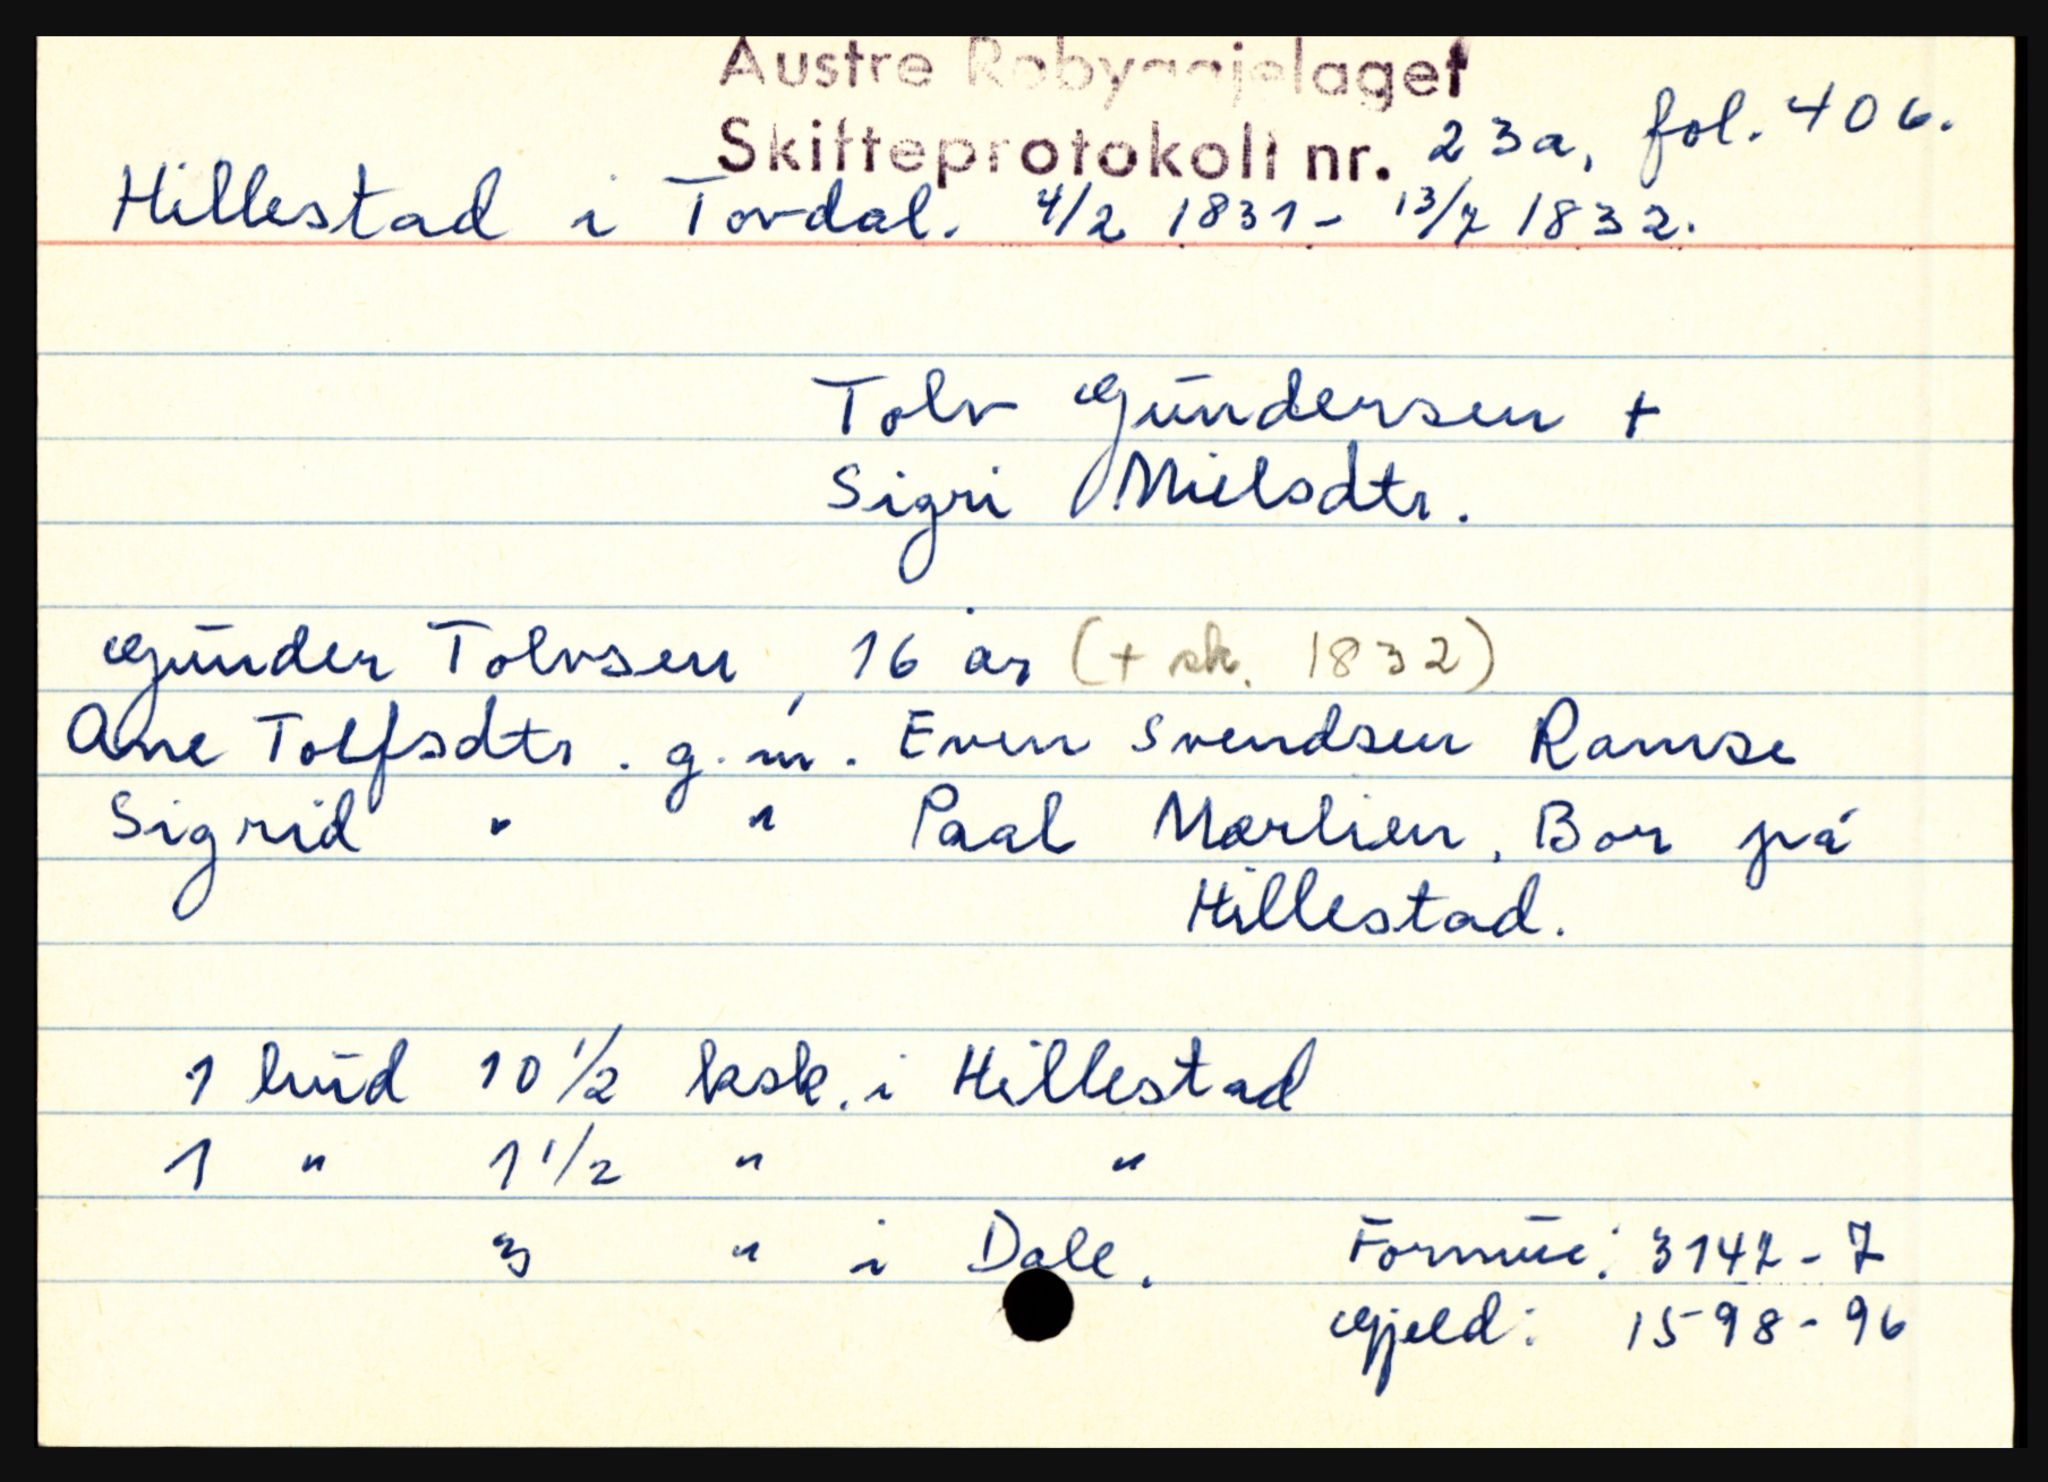 Austre Råbyggjelaget
Skifteprotokoll nr. 23a, fol. 406.
Hillestad i Tovdal. 4/2 1831 - 13/7 1832.
Tolv Gundersen +
Sigri Nielsdtr.
Gunder Tolvsen, 16 år (+ sk. 1832)
Ane Tolfsdtr. g.m. Even Svendsen Ramse
Sigrid " " Paal Mærlien, Bor på
Hillestad.
1 hud 10 1/2 ksk. i Hillestad
1 " 1 1/2 " "
3 " i Dale. Formue: 3142-7
Gjeld: 1598-96